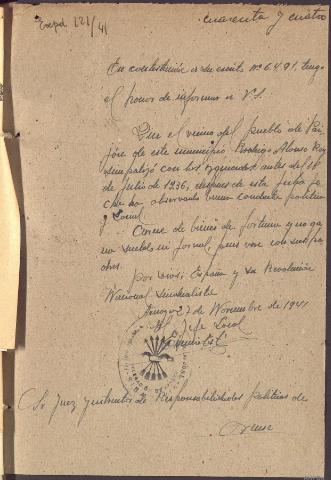 Exped 221/41
cuarenta y cuatro
En contestación a su escrito nº 6.491, tengo
el honor de informar a V.S.
Que el vecino del pueblo de
de este municipio Rodrigo Alonso
simpatizó con las izquierdas antes del 18
de Julio de 1936, despues de esta fecha
ha observado buena conducta politica
y social.
Carece de bienes de fortuna y no ga
na sueldo ni jornal, pues vive con sus pa
dres.
Por Dios, España y su Revolución
Nacional Sindicalista
27 de Noviembre de 1941
El Jefe Local
Sr. Juez Instructor de Responsabilidades Politicas de
Orense